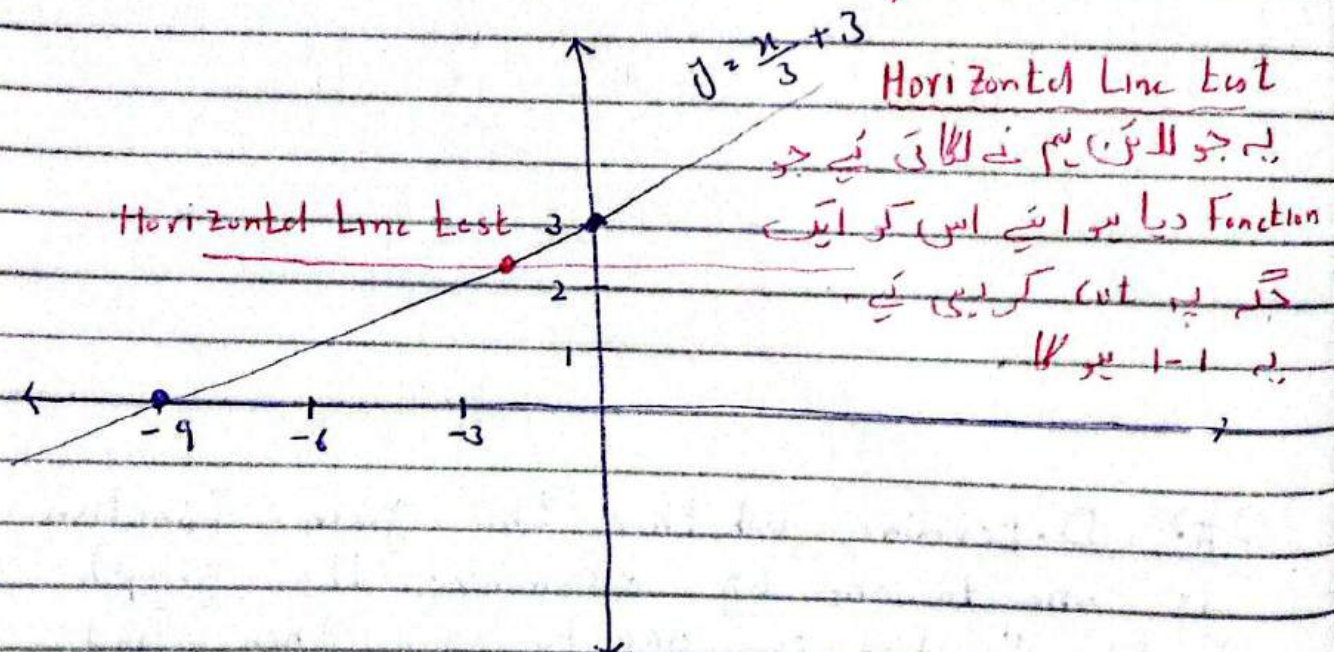 y = x/3 + 3
Horizontal Line test
یہ جو لائن ہم نے لگائی ہے جو
Function دیا ہوا ہے اس کو ایک
جگہ پہ cut کر رہی ہے
یہ 1-1 ہو گا
Horizontal Line test
3
2
1
-9 -6 -3